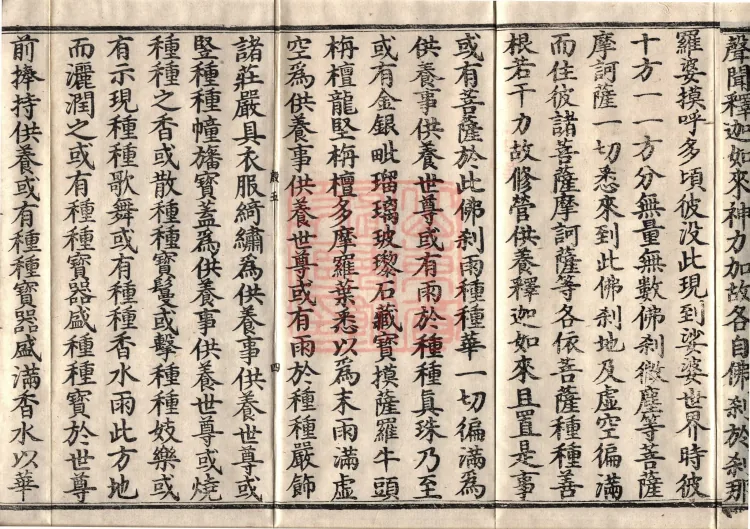 聲聞釋迦如來神力加故各自佛刹於刹那
羅婆摸呼多頃彼没此現到娑婆世界時彼
十方一一方分無量無數佛刹微塵等菩薩
摩訶薩一切悉來到此佛刹地及虛空徧滿
而住彼諸菩薩摩訶薩等各依菩薩種種善
根若干力故修營供養釋迦如來且置是事
或有菩薩於此佛刹雨種種華一切徧滿爲
供養事供養世尊或有雨於種種眞珠乃至
或有金銀毗瑠璃玻瓈石藏寶摸薩羅牛頭
栴檀龍堅栴檀多摩羅葉悉以爲末雨滿虛
空爲供養事供養世尊或有雨於種種嚴飾
四
諸莊嚴具衣服綺繡爲供養事供養世尊或
竪種種幢旛寶蓋爲供養事供養世尊或燒
種種之香或散種種寶鬘或擊種種妓樂或
有示現種種歌舞或有種種香水雨此方地
而灑潤之或有種種寶器盛種種寶於世尊
前捧持供養或有種種寶器盛滿香水以華